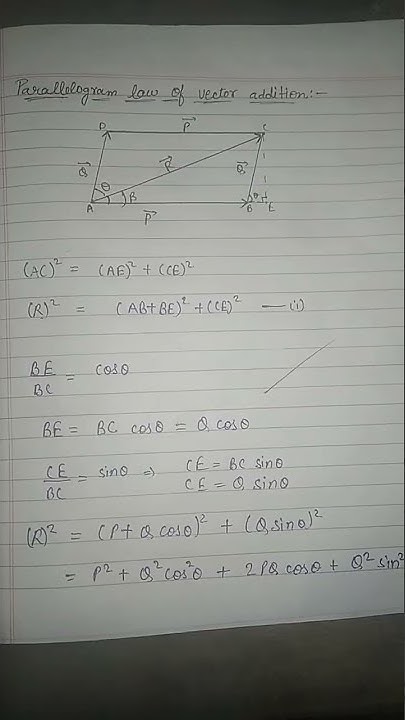 Parallelogram law of vector addition:-
D P⃗ C
Q⃗ R⃗ Q⃗
θ β θ
A P⃗ B E
(AC)² = (AE)² + (CE)²
(R)² = (AB+BE)² + (CE)² — (i)
BE/BC = cosθ
BE = BC cosθ = Q cosθ
CE/BC = sinθ ⇒ CE = BC sinθ
CE = Q sinθ
(R)² = (P+Q cosθ)² + (Q sinθ)²
= P² + Q² cos²θ + 2PQ cosθ + Q² sin²